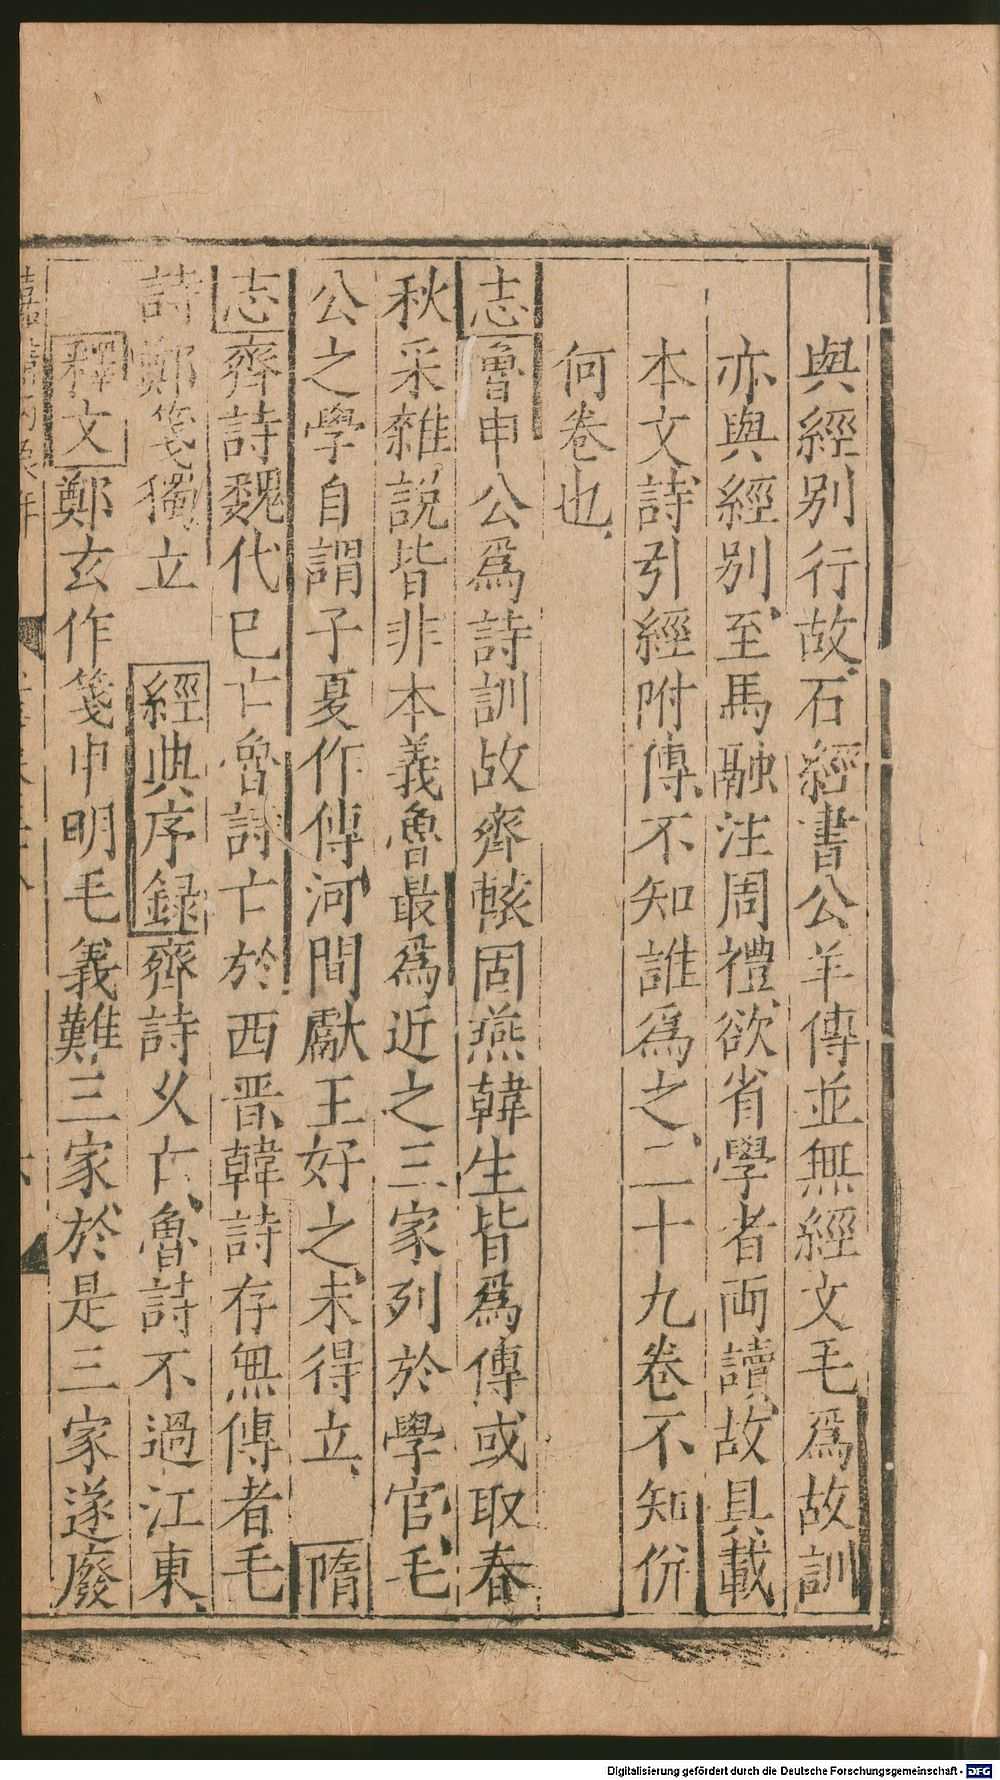 與經別行故石經書公羊傳並無經文毛爲故訓
亦與經別至馬融注周禮欲省學者兩讀故具載
本文詩引經附傳不知誰爲之二十九卷不知併
何卷也
志魯申公爲詩訓故齊轅固燕韓生皆爲傳或取春
秋采雜説皆非本義魯最爲近之三家列於學官毛
公之學自謂子夏作傳河間獻王好之未得立 隋
志齊詩魏代已亡魯詩亡於西晋韓詩存無傳者毛
詩鄭箋獨立 經典序録齊詩乆亡魯詩不過江東
釋文鄭玄作箋申明毛義難三家於是三家遂廢
Digitalisierung gefördert durch die Deutsche Forschungsgemeinschaft - DFG